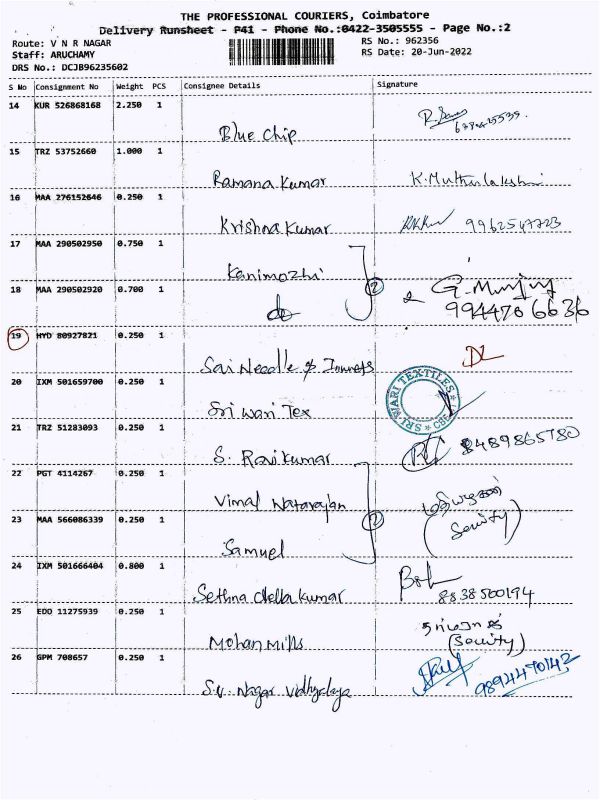 THE PROFESSIONAL COURIERS, Coimbatore
Delivery Runsheet - P41 - Phone No.:0422-3505555 - Page No.:2
Route: V N R NAGAR
RS No.: 962356
Staff: ARUCHAMY
RS Date: 20-Jun-2022
DRS No.: DCJB96235602
S No Consignment No Weight PCS Consignee Details Signature
14 KUR 526868168 2.250 1
Blue Chip
15 TRZ 53752660 1.000 1
Ramana Kumar K.Muthulakshmi
16 MAA 276152646 0.250 1
Krishna Kumar 9962547723
17 MAA 290502950 0.750 1
Kanimozhi
18 MAA 290502920 0.700 1
do 2 G.
9944706636
19 HYD 80927821 0.250 1
Sai Needle & DL
20 IXM 501659700 0.250 1
Sri Wari Tex SRI WARI TEXTILES * CBE *
21 TRZ 51283093 0.250 1
S. Ravikumar 8489865780
22 PGT 4114267 0.250 1
Vimal Natarajan
23 MAA 566086339 0.250 1
Samuel 2 (Secuity)
24 IXM 501666404 0.800 1
Sethna Chella Kumar 8838500194
25 EDO 11275939 0.250 1
Mohan Mills (Secuity)
26 GPM 708657 0.250 1
S.V. Nagar Vidhyalaya 9894470142